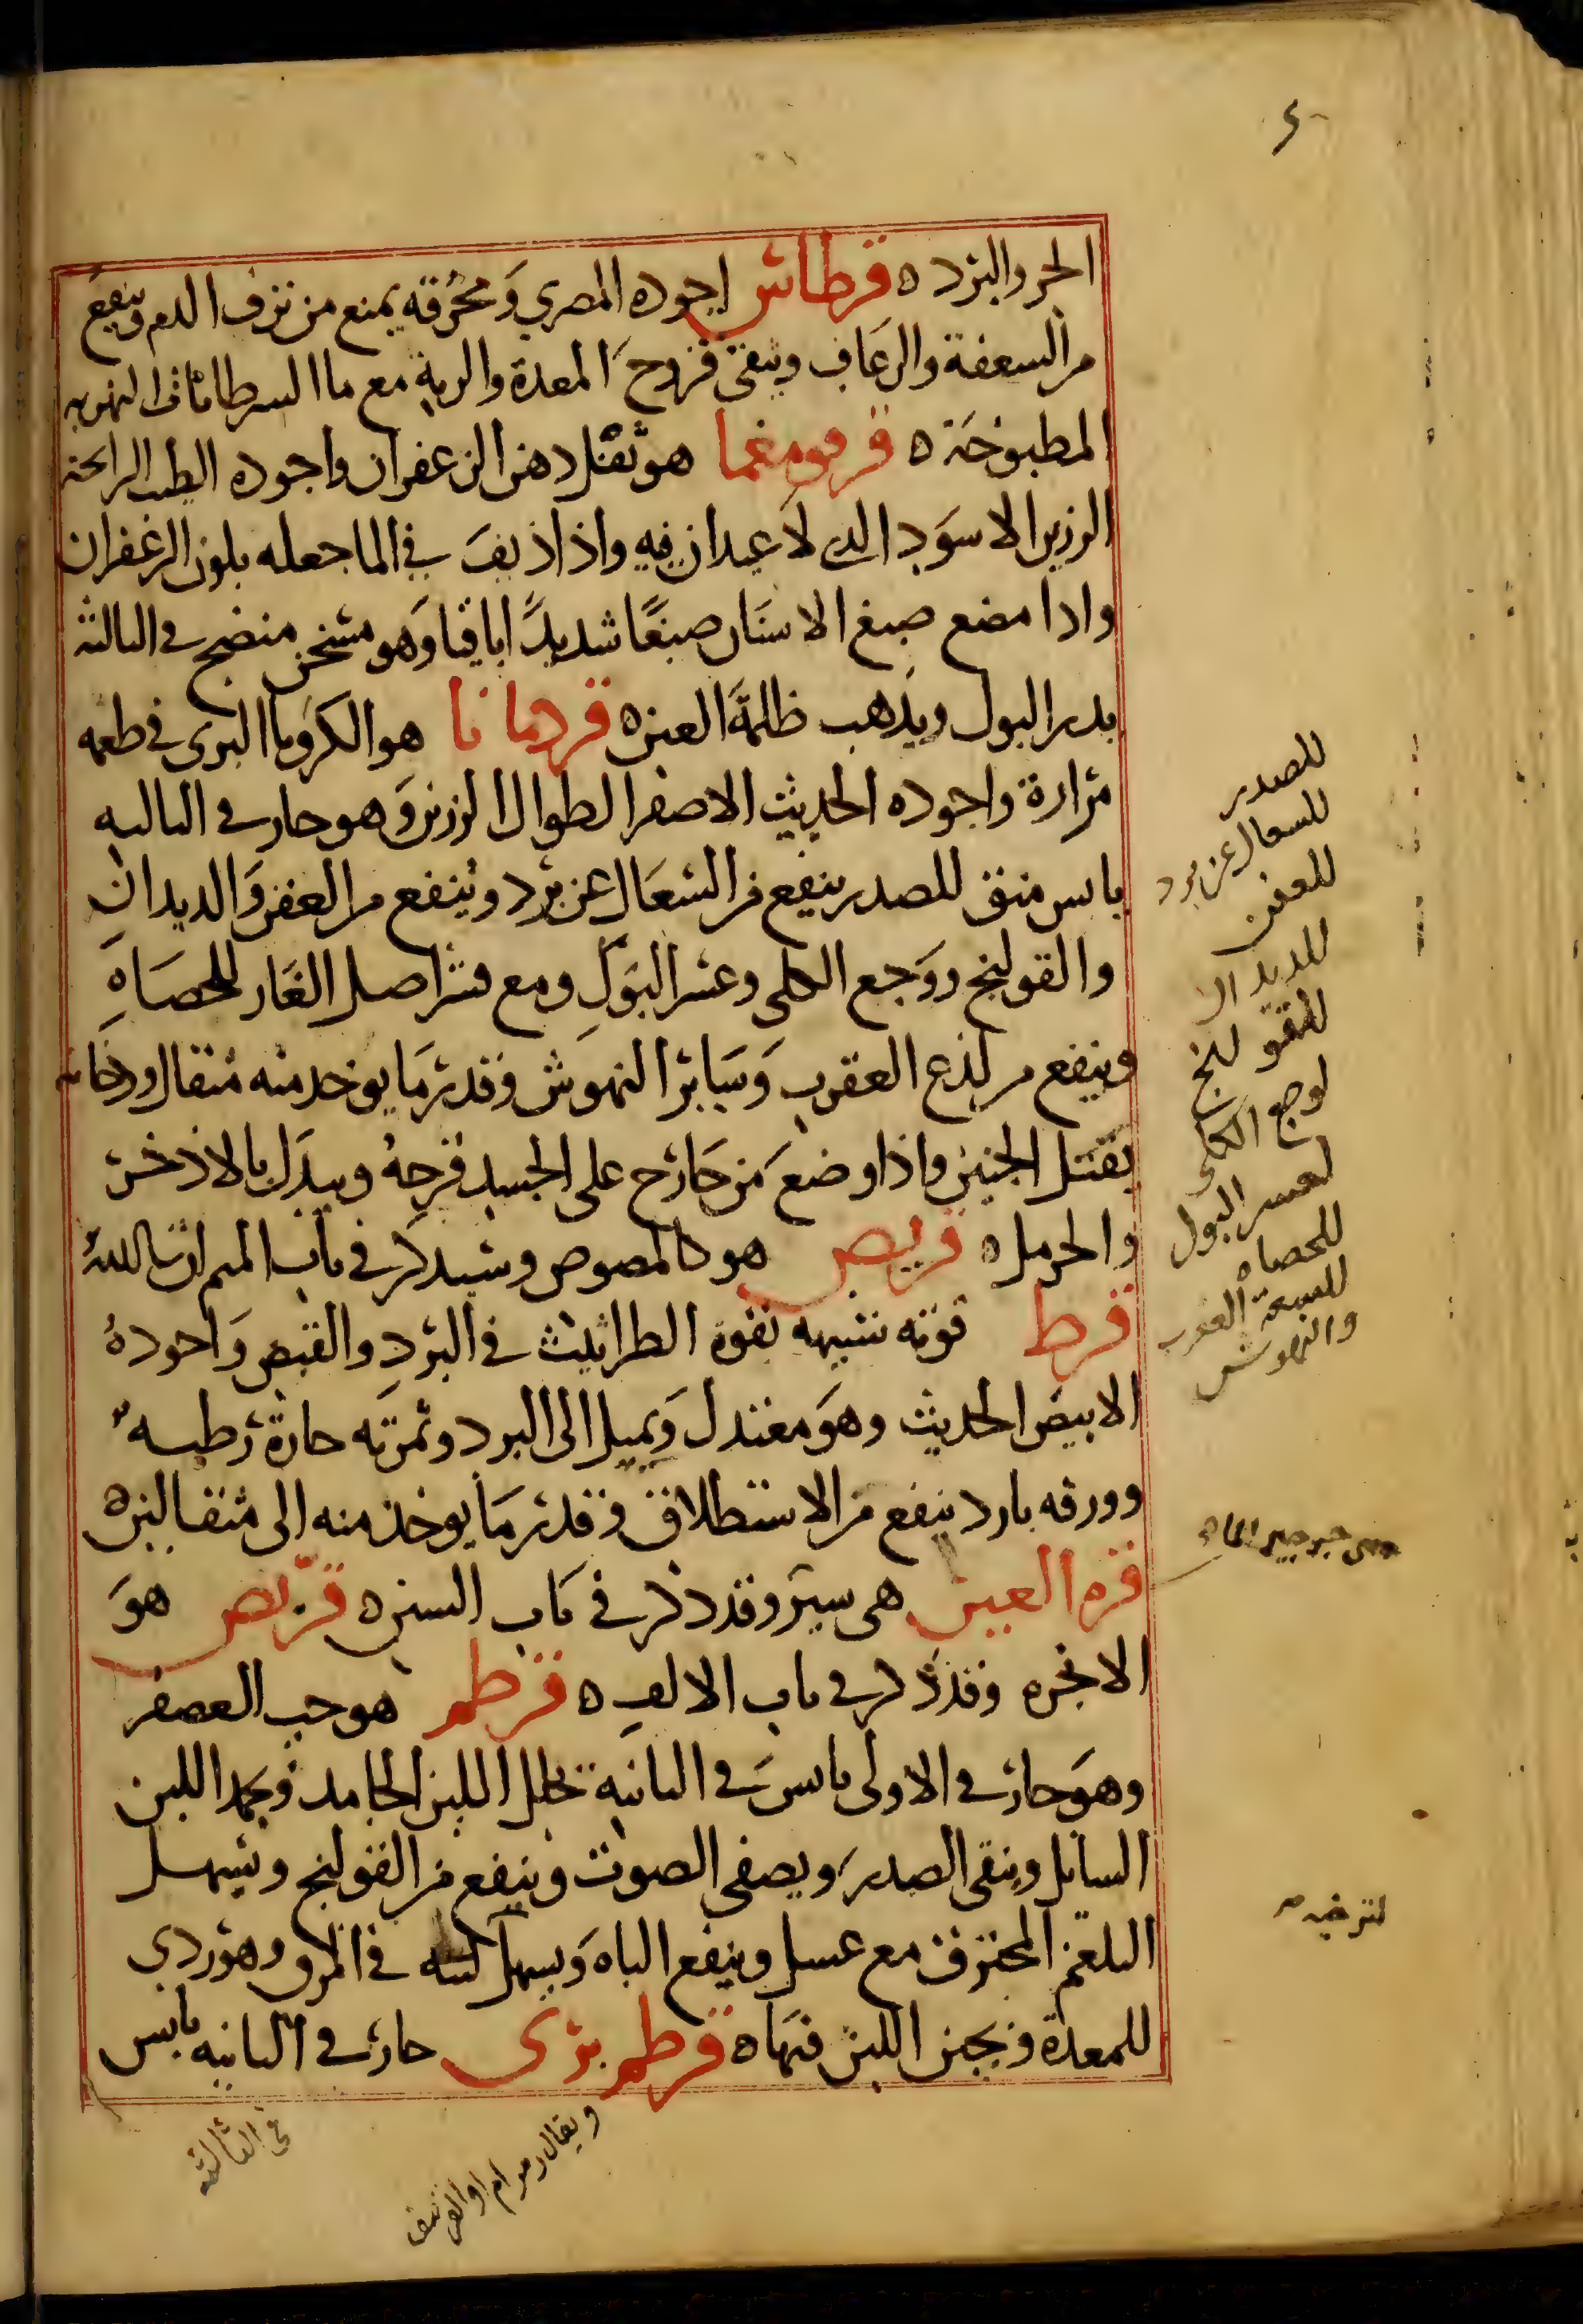 الحر والبرد ه قرطاس اجوده المصري ومحرقه يمنع من نزف الدم وينفع
من السعفة والرعاف وينقى قروح المعدة والرية مع ما السرطانات النهريه
المطبوخة ه قرقومغما هو ثفل دهن الزعفران واجوده الطيب الرايحة
الرزين الاسود الدى لا عيدان فيه واذا ذيف في الما جعله بلون الزعفران
واذا مضغ صبغ الاسنان صبغا شديدا باقيا وهو مسخن منضج في الثالثة
يدر البول ويذهب ظلمة العين ه قردمانا هو الكرويا البرى في طعمه
مرارة واجوده الحديث الاصفر الطوال الرزين وهو حار في الثالثه
يابس منق للصدر ينفع من السعال عن برد وينفع من العفن والديدان
والقولنج ووجع الكلى وعسر البول ومع قشر اصل الغار للحصاه
وينفع من لذع العقرب وساير النهوش وقدر ما يوخد منه مثقال ودخانه
يقتل الجنين واذا وضع من خارج على الجسد قرحه ويبدل بالاذخر
والحرمل ه قريص هو كالمصوص وسيذكر في باب الميم ان شا الله
قرط قوته شبيهه بقوة الطراثيث في البرد والقبض واجوده
الابيض الحديث وهو معتدل ويميل الى البرد وثمرته حارة رطبه
وورقه بارد ينفع من الاستطلاق وقدر ما يوخذ منه الى مثقالين ه
قره العين هى سير وقد ذكر في باب السين ه قريص هو
الانجره وقد ذكر في باب الالف ه قرطم هو حب العصفر
وهو حار في الاولى يابس في الثانية يحلل اللبن الجامد ويجمد اللبن
السايل وينقى الصدر ويصفى الصوت وينفع من القولنج ويسهل
البلغم المحترق مع عسل وينفع الباه ويسهل لبنه في المرق وهو ردي
للمعدة ويجبن اللبن فيها ه قرطم برى حار في الثانيه يابس
في الثالثه
للصدر
للسعال عن برد
للعفن
للديدان
للقولنج
لوجع الكلى
لعسر البول
للحصاه
للسعة العقرب
والنهوش
وهى جرجير الماء